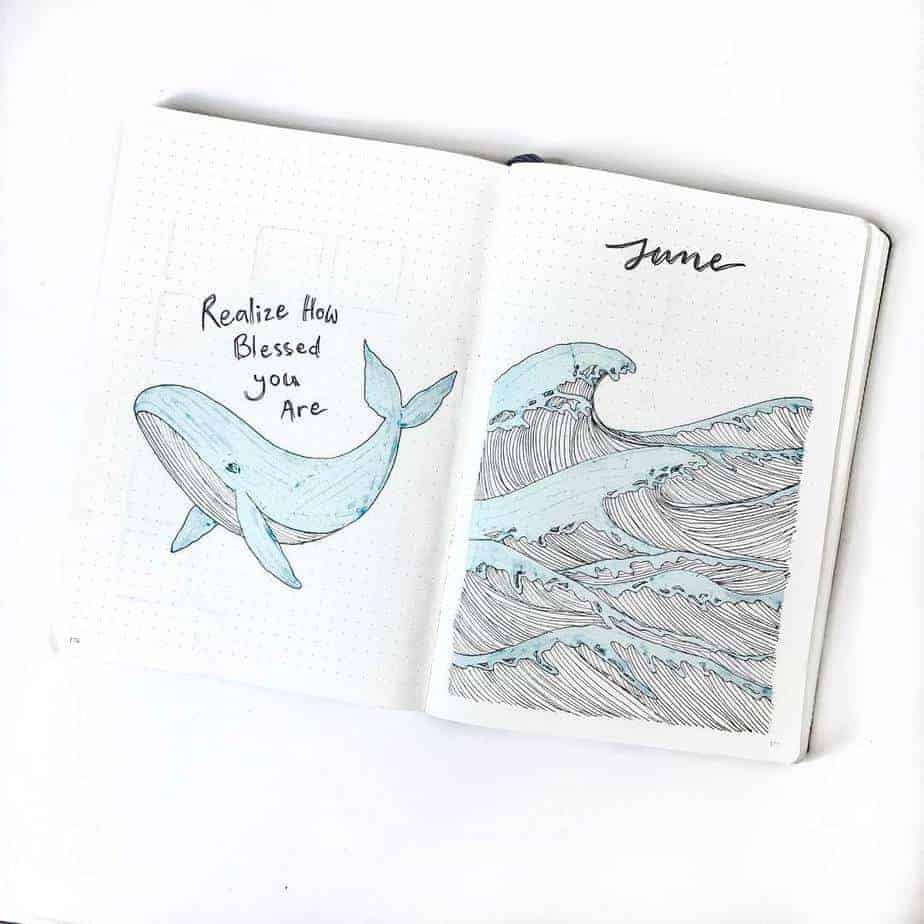 Realize How
Blessed
you
Are
June